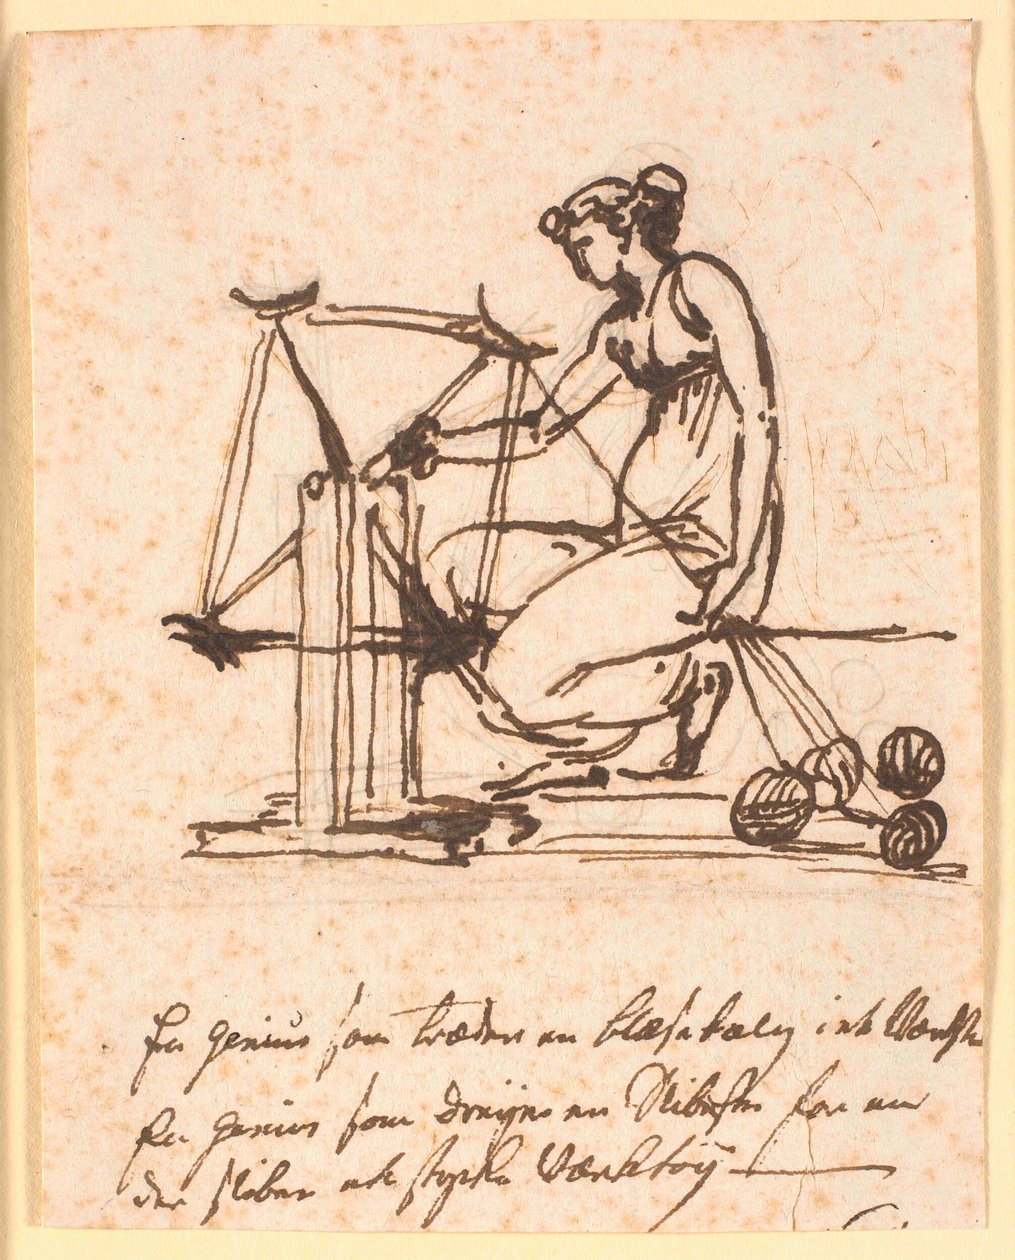 En Genius som træder en blæsebælg i et
En Genius som dreijer en Slibesten for en
der sliber et stykke Værktöÿ